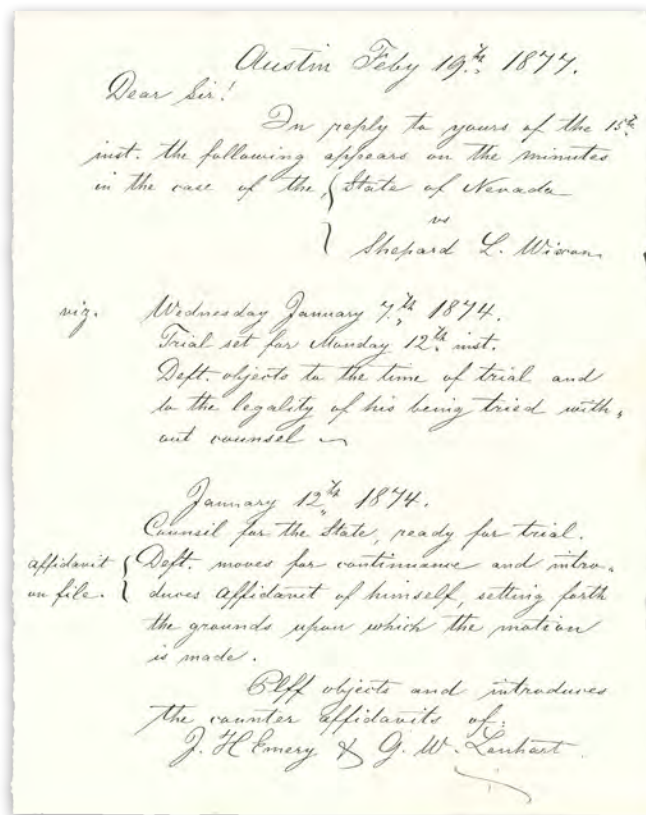 Austin Feby 19th 1877.
Dear Sir!
In reply to yours of the 15th
inst. the following appears on the minutes
in the case of the, { State of Nevada
vs
Shepard L. Wixom
viz. Wednesday January 7th 1874.
Trial set for Monday 12th inst.
Deft. objects to the time of trial and
to the legality of his being tried with,
out counsel ~
January 12th 1874.
Council for the State, ready for trial.
Affidavit on file. { Deft. moves for continuance and intro,
duces affidavit of himself, setting forth
the grounds upon which the motion
is made.
Plff objects and introduces
the counter affidavits of:
J. H Emery & G. W. Lenhart